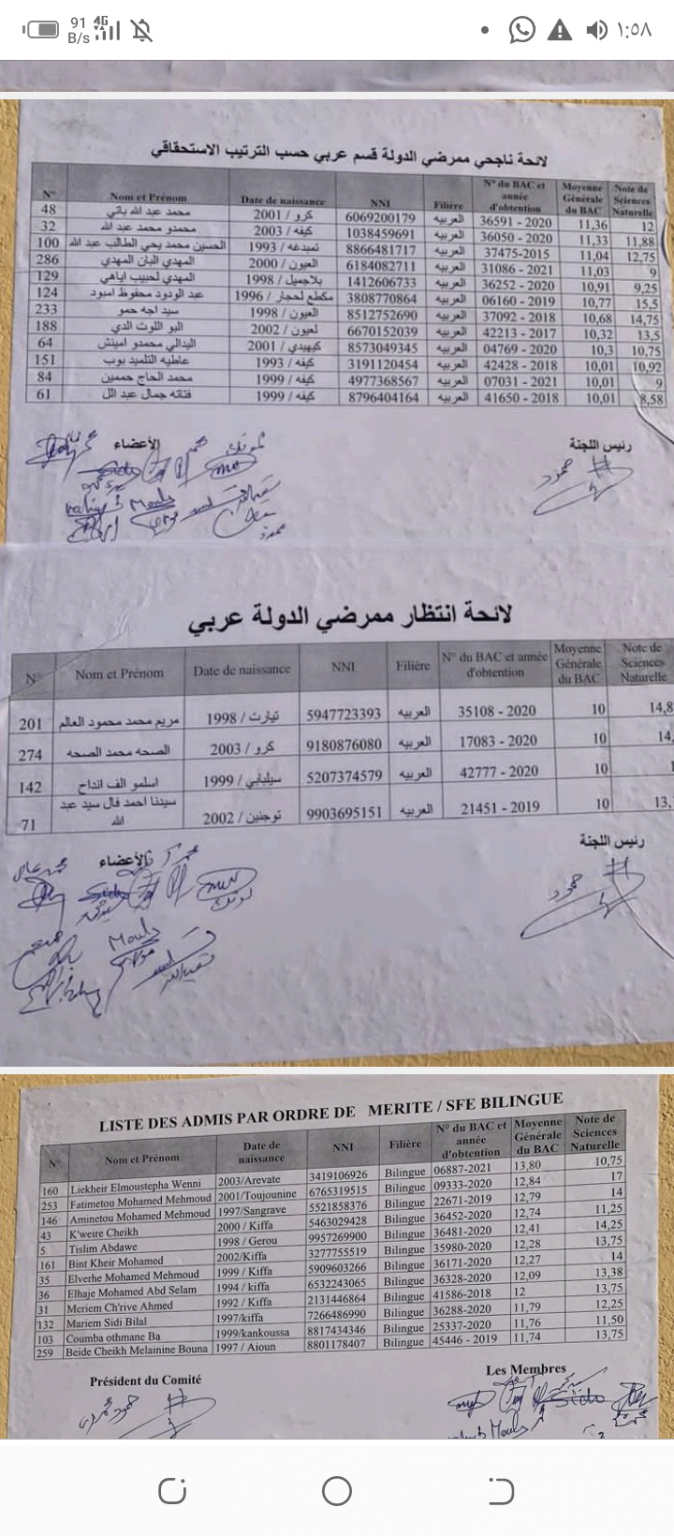 91 B/s 4G ١:٥٨
لائحة ناجحي ممرضي الدولة قسم عربي حسب الترتيب الاستحقاقي
N° Nom et Prénom Date de naissance NNI Filière N° du BAC et année d'obtention Moyenne Générale du BAC Note de Sciences Naturelle
48 محمد عبد الله باتي كرو / 2001 6069200179 العربيه 36591 - 2020 11,36 12
32 محمدو محمد عبد الله كيفه / 2003 1038459691 العربيه 36050 - 2020 11,33 11,88
100 الحسين محمد يحي الطالب عبد الله تمبدغه / 1993 8866481717 العربيه 37475-2015 11,04 12,75
286 المهدي البان المهدي العيون / 2000 6184082711 العربيه 31086 - 2021 11,03 9
129 المهدي لحبيب اباهي بلاجميل / 1998 1412606733 العربيه 36252 - 2020 10,91 9,25
124 عبد الودود محفوظ امبود مكطع لحجار / 1996 3808770864 العربيه 06160 - 2019 10,77 15,5
233 سيد اجه حمو العيون / 1998 8512752690 العربيه 37092 - 2018 10,68 14,75
188 البو اللوت الدي لعيون / 2002 6670152039 العربيه 42213 - 2017 10,32 13,5
64 البدالي محمدو امينش كيهيدي / 2001 8573049345 العربيه 04769 - 2020 10,3 10,75
151 عاطيه التلميد بوب كيفه / 1993 3191120454 العربيه 42428 - 2018 10,01 10,92
84 محمد الحاج حممين كيفه / 1999 4977368567 العربيه 07031 - 2021 10,01 9
61 فتاته جمال عبد الل كيفه / 1999 8796404164 العربيه 41650 - 2018 10,01 8,58
رئيس اللجنة الأعضاء
لائحة انتظار ممرضي الدولة عربي
N° Nom et Prénom Date de naissance NNI Filière N° du BAC et année d'obtention Moyenne Générale du BAC Note de Sciences Naturelle
201 مريم محمد محمود العالم تيارت / 1998 5947723393 العربيه 35108 - 2020 10 14,8
274 الصحه محمد الصحه كرو / 2003 9180876080 العربيه 17083 - 2020 10 14,
142 اسلمو الف انداح سيلبابي / 1999 5207374579 العربيه 42777 - 2020 10 1
71 سيدنا احمد فال سيد عبد الله توجنين / 2002 9903695151 العربيه 21451 - 2019 10 13,
رئيس اللجنة الأعضاء
LISTE DES ADMIS PAR ORDRE DE MERITE / SFE BILINGUE
N° Nom et Prénom Date de naissance NNI Filière N° du BAC et année d'obtention Moyenne Générale du BAC Note de Sciences Naturelle
160 Liekheir Elmoustepha Wenni 2003/Arevate 3419106926 Bilingue 06887-2021 13,80 10,75
253 Fatimetou Mohamed Mehmoud 2001/Toujounine 6765319515 Bilingue 09333-2020 12,84 17
146 Aminetou Mohamed Mehmoud 1997/Sangrave 5521858376 Bilingue 22671-2019 12,79 14
43 K'weire Cheikh 2000 / Kiffa 5463029428 Bilingue 36452-2020 12,74 11,25
5 Tislim Abdawe 1998 / Gerou 9957269900 Bilingue 36481-2020 12,41 14,25
161 Bint Kheir Mohamed 2002/Kiffa 3277755519 Bilingue 35980-2020 12,28 13,75
35 Elverhe Mohamed Mehmoud 1999 / Kiffa 5909603266 Bilingue 36171-2020 12,27 14
36 Elhaje Mohamed Abd Selam 1994 / kiffa 6532243065 Bilingue 36328-2020 12,09 13,38
31 Meriem Ch'rive Ahmed 1992 / Kiffa 2131446864 Bilingue 41586-2018 12 13,75
132 Mariem Sidi Bilal 1997/kiffa 7266486990 Bilingue 36288-2020 11,79 12,25
103 Coumba othmane Ba 1999/kankoussa 8817434346 Bilingue 25337-2020 11,76 11,50
259 Beide Cheikh Melainine Bouna 1997 / Aioun 8801178407 Bilingue 45446 - 2019 11,74 13,75
Président du Comité Les Membres